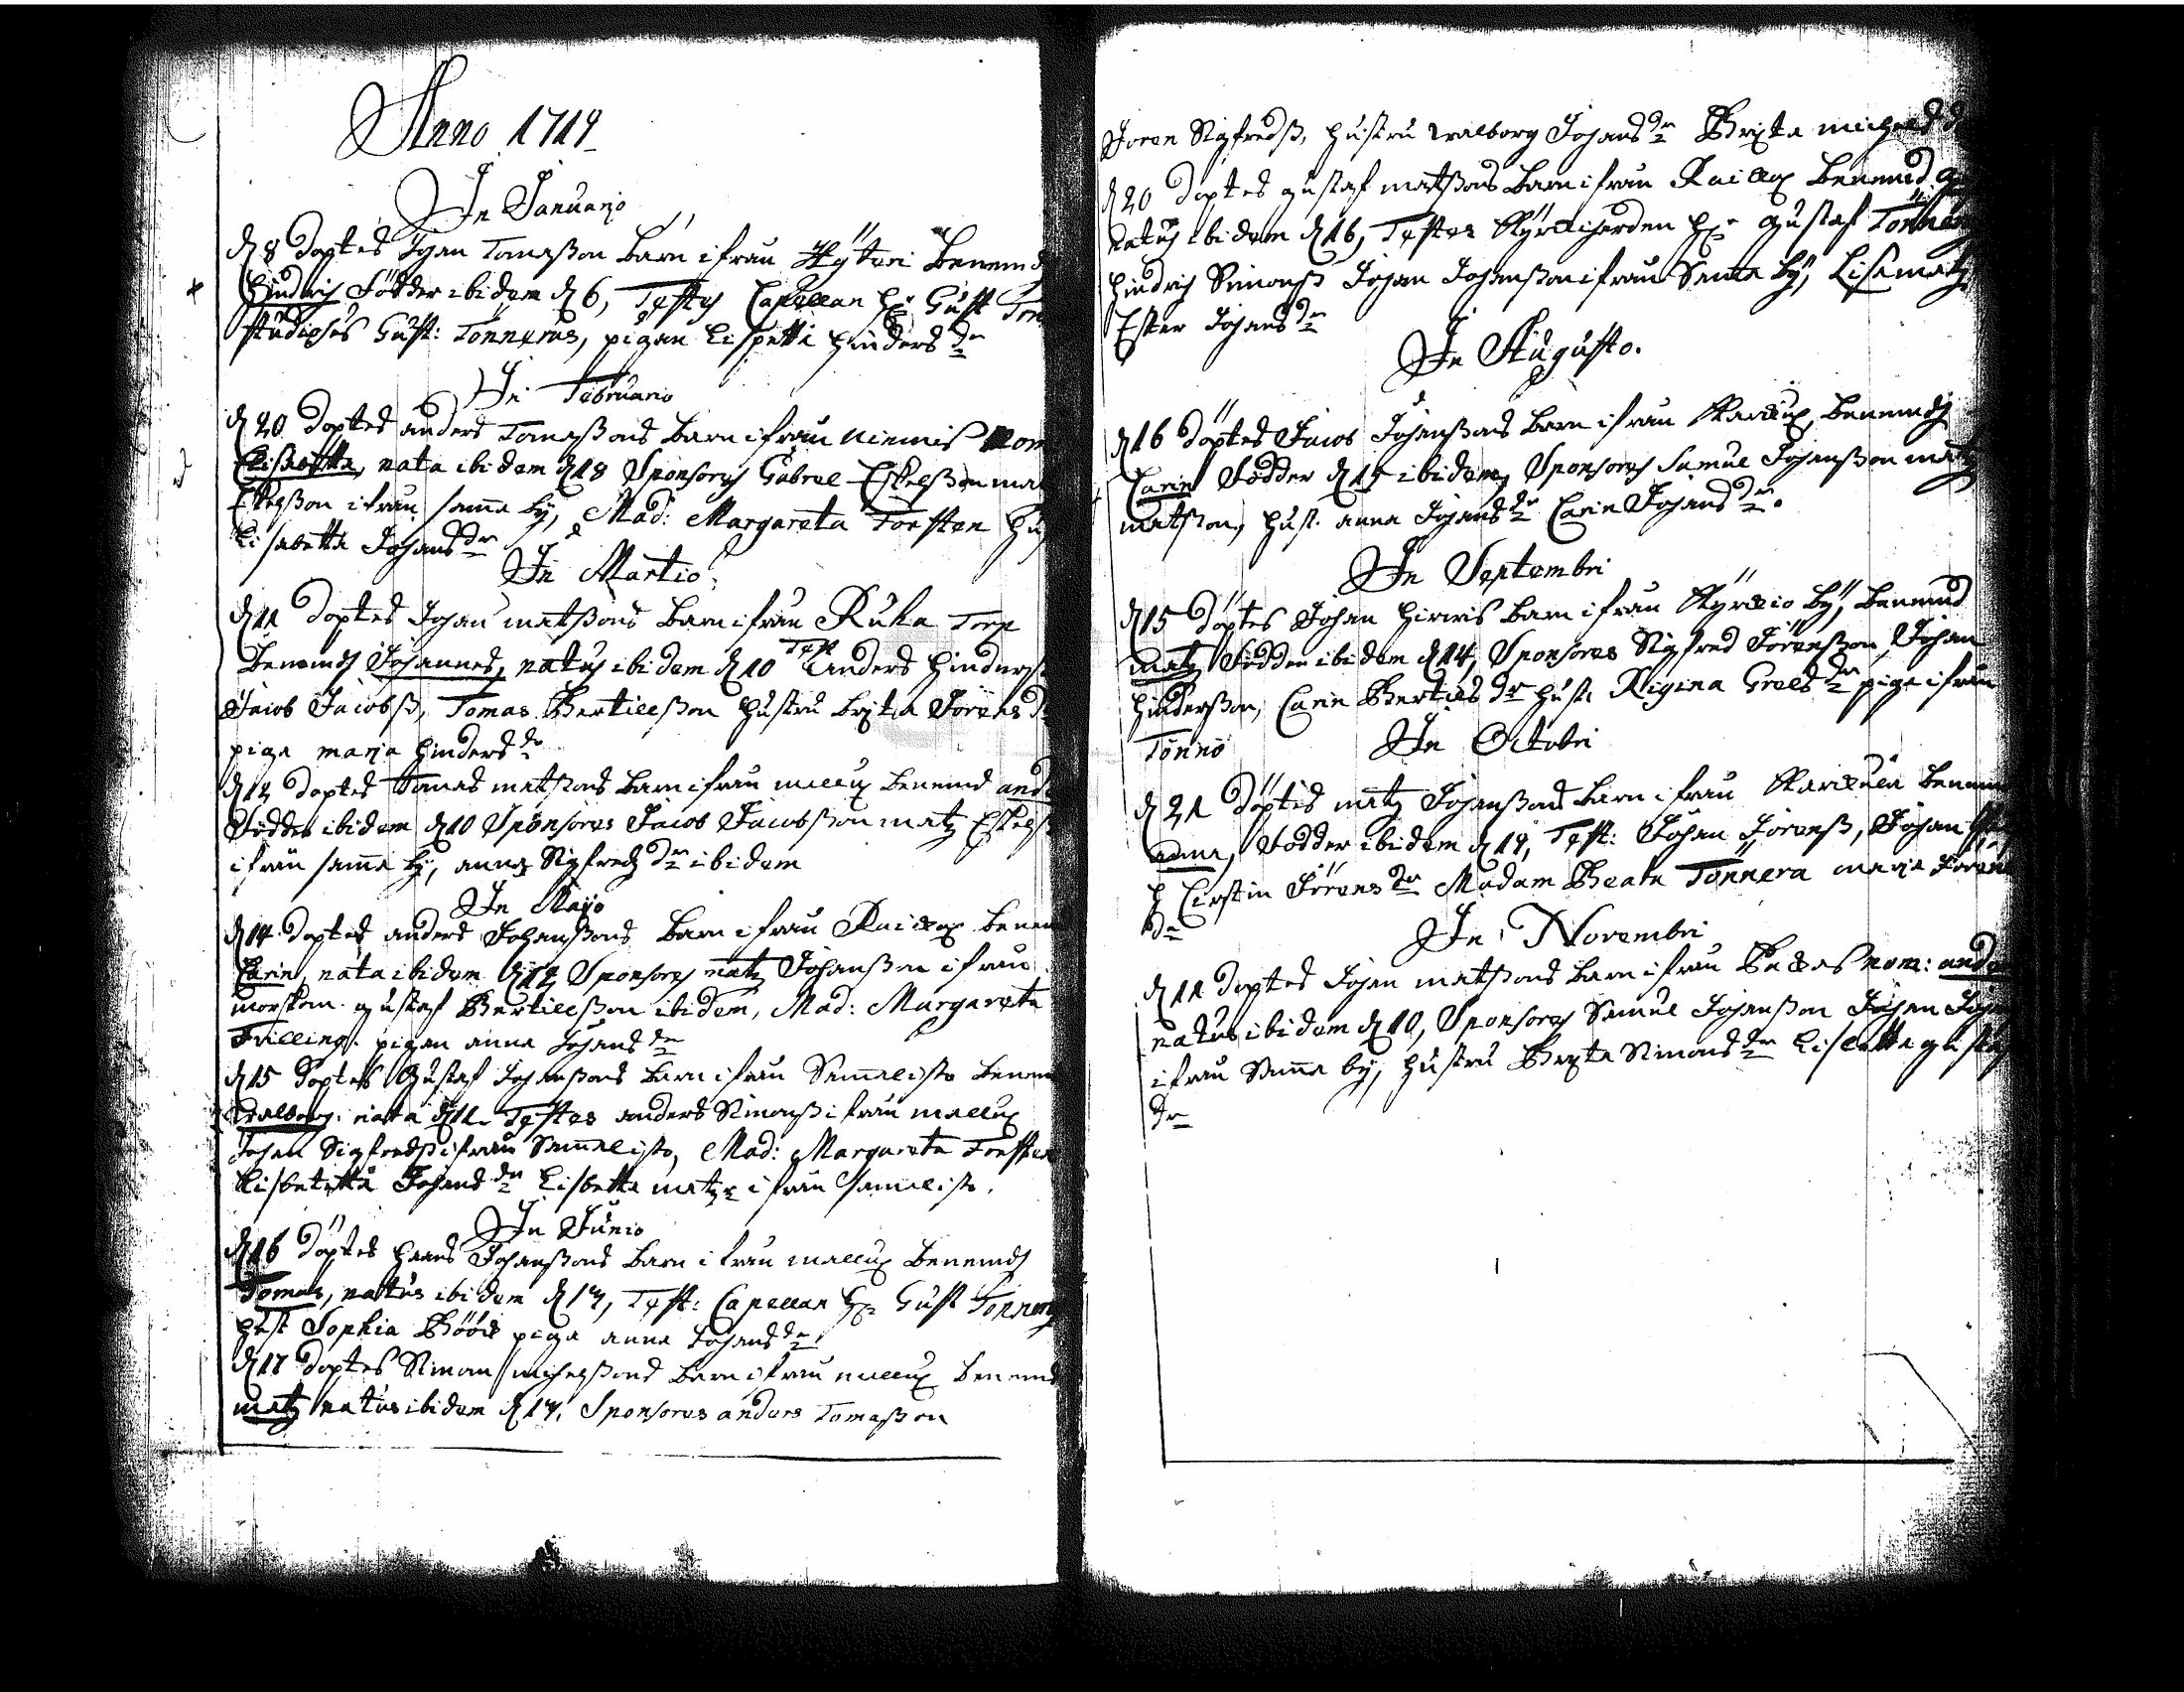 Anno 1719
In Januario
d 8 döptes Johan Tomasson barn ifrån Hÿtöri benemd
Hindrich Födder ibidem d 6, Testes Capellan Hr Gust Ton
studiosus Gust: Tonnerus, pigan Lispetta Hinders dr
In Februario
d 20 döptes anders Tomassons barn ifrån niemis nom
Elisabetta, nata ibidem d 18 Sponsores Gabrel Eskelsson mat
Eskelsson ifrån samma bÿ, Mad: Margareta Forsteen Hu
Lisabetta Johans dr
In Martio
d 11 döptes Johan matssons barn ifrån Ruka Torp
benemdh Johannes, natus ibidem d 10 Test anders Hinderss
Jacob Jacobss, Tomas Bertillsson Hustru brita Jörens d
piga marja Hinders dr
d 12 döptes Tomas matssons barn ifrån mellux benemd and
Födder ibidem d 10 Sponsores Jacob Jacobsson matz Eskelss
ifrån samma bÿ, anna Sigfredz dr ibidem
In Majo
d 14 döptes anders Johanssons barn ifrån benem
Carin, nata ibidem d 12 Sponsores matz Johansson ifrån
morskom gustaf Bertillsson ibidem, Mad: Margareta
Frilling. pigan anna Johans dr
d 15 döptes Gustaf Johanssons barn ifrån Sammalisto benem
Walborg. nata d 12 Testes anders Simonss ifrån mellux
Johan Sigfredss ifrån Sammalisto, Mad: Margareta Forsteen
Lisbetetta Johans dr Lisbetta matz dr ifrån Samalisto.
In Junio
d 16 döptes Hans Johanssons barn ifrån mellux benemdh
Tomas, natus ibidem d 14, Test: Capellan Hr Gust Tonnerus
Hust Sophia Bööis piga anna Johans dr
d 17 döptes Simon michelssons barn ifrån mellux benemd
matz natus ibidem d 14, Sponsores anders Tomasson
Joren Sigfredss, Hustru walborg Johans dr Brita michels d
d 20 döptes gustaf matssons barn ifrån benemd
natus ibidem d 16, Testes Kyrckiherden Hr gustaf Tonnerus
Hindrich Simonss Johan Johansson ifrån Samma bÿ, Lisa matz
Ester Johans dr
In Augusto.
d 16 döptes Jacob Johanssons barn ifrån benemdh
Carin Födder d 15 ibidem, Sponsores Samuel Johansson matz
matsson, Hust. anna Johans dr Carin Johans dr.
In Septembri
d 15 döptes Johan barn ifrån Kÿrckio bÿ, benemd
matz Födder ibidem d 14, Sponsores Sigfred Jörensson, Johan
Hindersson, Carin Bertils dr Hust Rigina Grels dr piga ifrån
Tönnö
In Octobri
d 21 döptes matz Johanssons barn ifrån benem
anna, Födder ibidem d 19, Test: Johan Jörenss, Johan
H Cirstin Jörens dr Madam Beata Tonnera marja Jören
dr
In Novembri
d 11 döptes Johan matssons barn ifrån nom: and
natus ibidem d 10, Sponsores Samuel Johansson Johan Joh
ifrån Samma bÿ, Hustru Brita Simons dr Lisabetta gustaf
dr